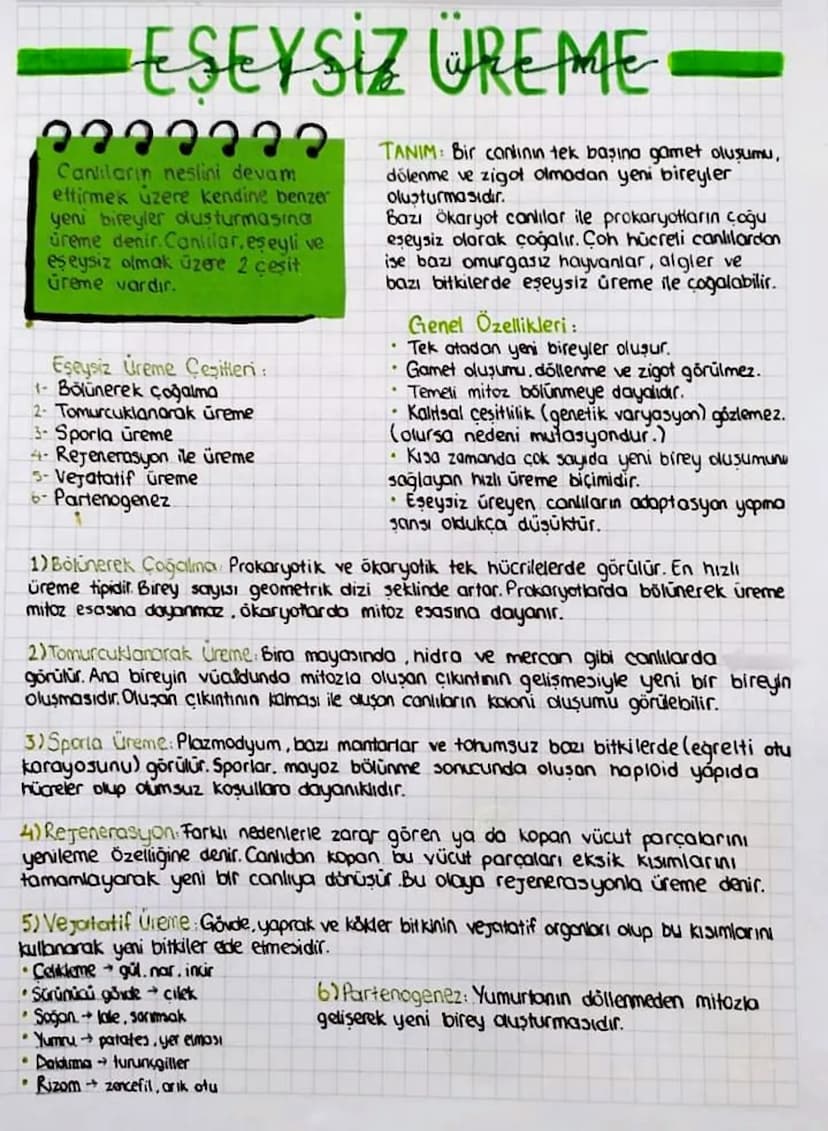 EŞEYSİZ ÜREME
eşeysiz üreme
Canlıların neslini devam
ettirmek üzere kendine benzer
yeni bireyler oluşturmasına
üreme denir. Canlılar, eşeyli ve
eşeysiz olmak üzere 2 çeşit
üreme vardır.
TANIM: Bir canlının tek başına gamet oluşumu,
dölenme ve zigot olmadan yeni bireyler
oluşturmasıdır.
Bazı ökaryot canlılar ile prokaryotların çoğu
eşeysiz olarak çoğalır. Çoh hücreli canlılardan
ise bazı omurgasız hayvanlar, algler ve
bazı bitkilerde eşeysiz üreme ile çoğalabilir.
Eşeysiz Üreme Çeşitleri:
1- Bölünerek çoğalma
2- Tomurcuklanarak üreme
3- Sporla üreme
4- Rejenerasyon ile üreme
5- Vejatatif üreme
6- Partenogenez
Genel Özellikleri:
• Tek atadan yeni bireyler oluşur.
• Gamet oluşumu, döllenme ve zigot görülmez.
• Temeli mitoz bölünmeye dayalıdır.
• Kalıtsal çeşitlilik (genetik varyasyon) gözlemez.
(olursa nedeni mutasyondur.)
• Kısa zamanda çok sayıda yeni birey oluşumunu
sağlayan hızlı üreme biçimidir.
• Eşeysiz üreyen canlıların adaptasyon yapma
şansı oldukça düşüktür.
1) Bölünerek Çoğalma: Prokaryotik ve ökaryotik tek hücrelilerde görülür. En hızlı
üreme tipidir. Birey sayısı geometrik dizi şeklinde artar. Prokaryotlarda bölünerek üreme
mitoz esasına dayanmaz, ökaryotlarda mitoz esasına dayanır.
2) Tomurcuklanarak Üreme: Bira mayasında, hidra ve mercan gibi canlılarda
görülür. Ana bireyin vücudunda mitozla oluşan çıkıntının gelişmesiyle yeni bir bireyin
oluşmasıdır. Oluşan çıkıntının kalması ile oluşan canlıların koloni oluşumu görülebilir.
3) Sporla Üreme: Plazmodyum, bazı mantarlar ve tohumsuz bazı bitkilerde (eğrelti otu
karayosunu) görülür. Sporlar, mayoz bölünme sonucunda oluşan haploid yapıda
hücreler olup olumsuz koşullara dayanıklıdır.
4) Rejenerasyon: Farklı nedenlerle zarar gören ya da kopan vücut parçalarını
yenileme özelliğine denir. Canlıdan kopan bu vücut parçaları eksik kısımlarını
tamamlayarak yeni bir canlıya dönüşür. Bu olaya rejenerasyonla üreme denir.
5) Vejatatif Üreme: Gövde, yaprak ve kökler bitkinin vejatatif organları olup bu kısımlarını
kullanarak yeni bitkiler elde etmesidir.
• Çelikleme → gül, nar, incir
• Sürünücü gövde → çilek
• Soğan → lale, sarımsak
• Yumru → patates, yer elması
• Daldırma → turunçgiller
• Rizom → zencefil, arık otu
6) Partenogenez: Yumurtanın döllenmeden mitozla
gelişerek yeni birey oluşturmasıdır.